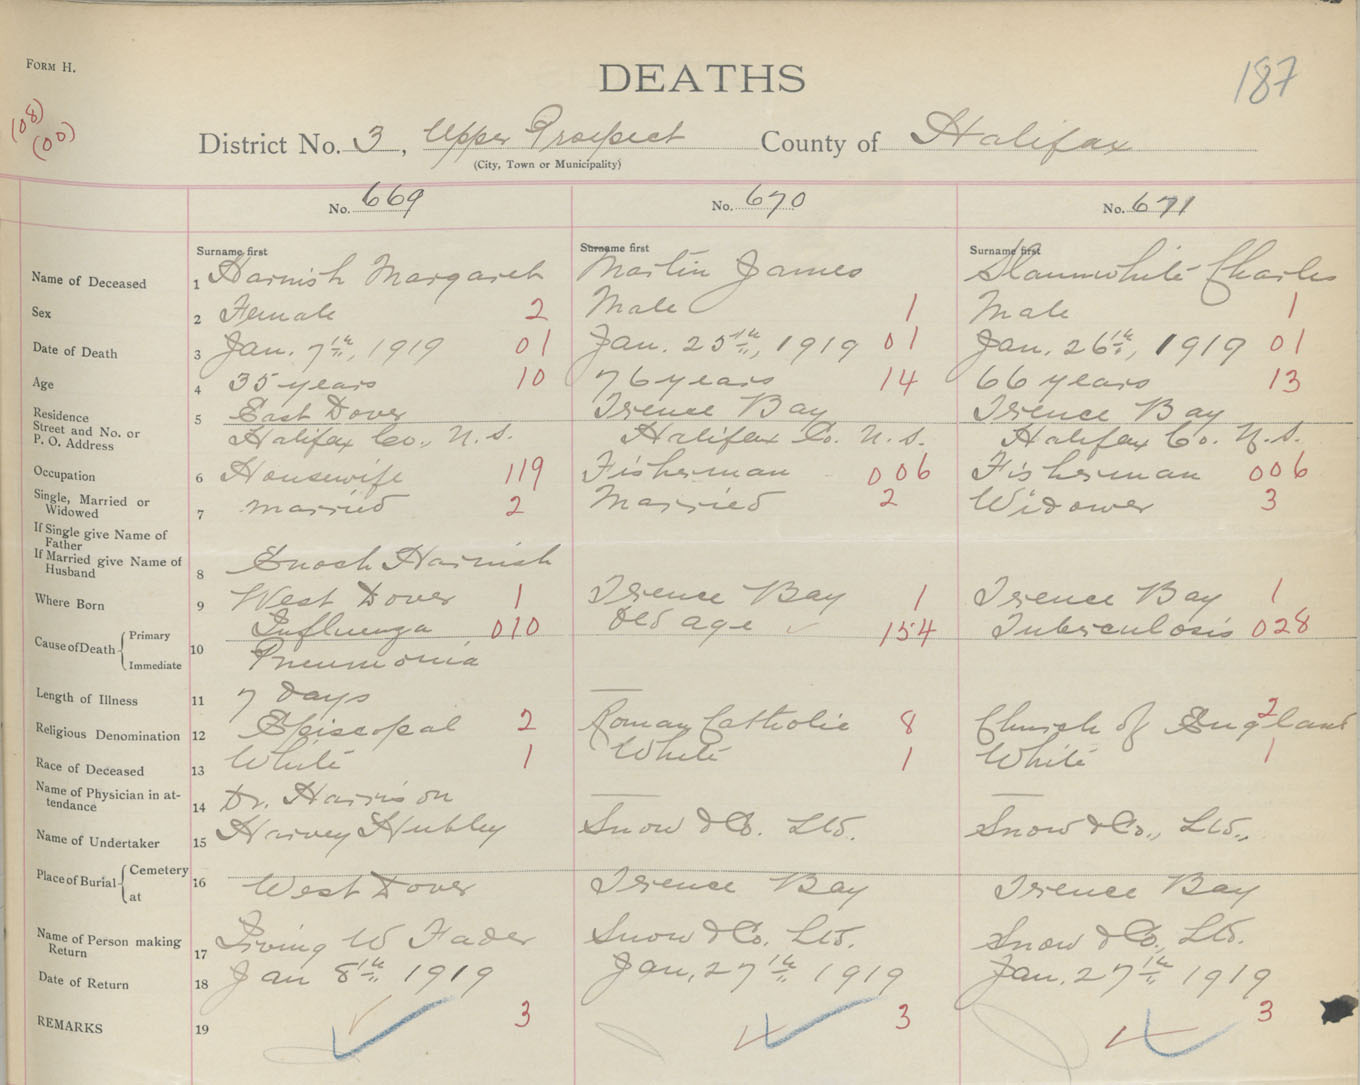 FORM H.
DEATHS
187
(08)
(00)
District No. 3, Upper Prospect County of Halifax
(City, Town or Municipality)
No. 669 No. 670 No. 671
Surname first Surname first Surname first
Name of Deceased 1 Harnish Margaret Martin James Slaunwhite Charles
Sex 2 Female 2 Male 1 Male 1
Date of Death 3 Jan. 7th, 1919 01 Jan. 25th, 1919 01 Jan. 26th, 1919 01
Age 4 35 years 10 76 years 14 66 years 13
Residence 5 East Dover Terence Bay Terence Bay
Street and No. or
P. O. Address Halifax Co., N.S. Halifax Co. N.S. Halifax Co. N.S.
Occupation 6 Housewife 119 Fisherman 006 Fisherman 006
Single, Married or
Widowed 7 Married 2 Married 2 Widower 3
If Single give Name of
Father
If Married give Name of
Husband 8 Enoch Harnish
Where Born 9 West Dover 1 Terence Bay 1 Terence Bay 1
Cause of Death Primary 10 Influenza 010 Old age 154 Tuberculosis 028
Immediate Pneumonia
Length of Illness 11 7 days —
Religious Denomination 12 Episcopal 2 Roman Catholic 8 Church of England 2
Race of Deceased 13 White 1 White 1 White 1
Name of Physician in at-
tendance 14 Dr. Harrison — —
Name of Undertaker 15 Harvey Hubley Snow & Co. Ltd. Snow & Co., Ltd.,
Place of Burial Cemetery 16
at West Dover Terence Bay Terence Bay
Name of Person making
Return 17 Irving W Fader Snow & Co. Ltd. Snow & Co., Ltd.
Date of Return 18 Jan 8th, 1919 Jan. 27th, 1919 Jan. 27th, 1919
REMARKS 19 3 3 3